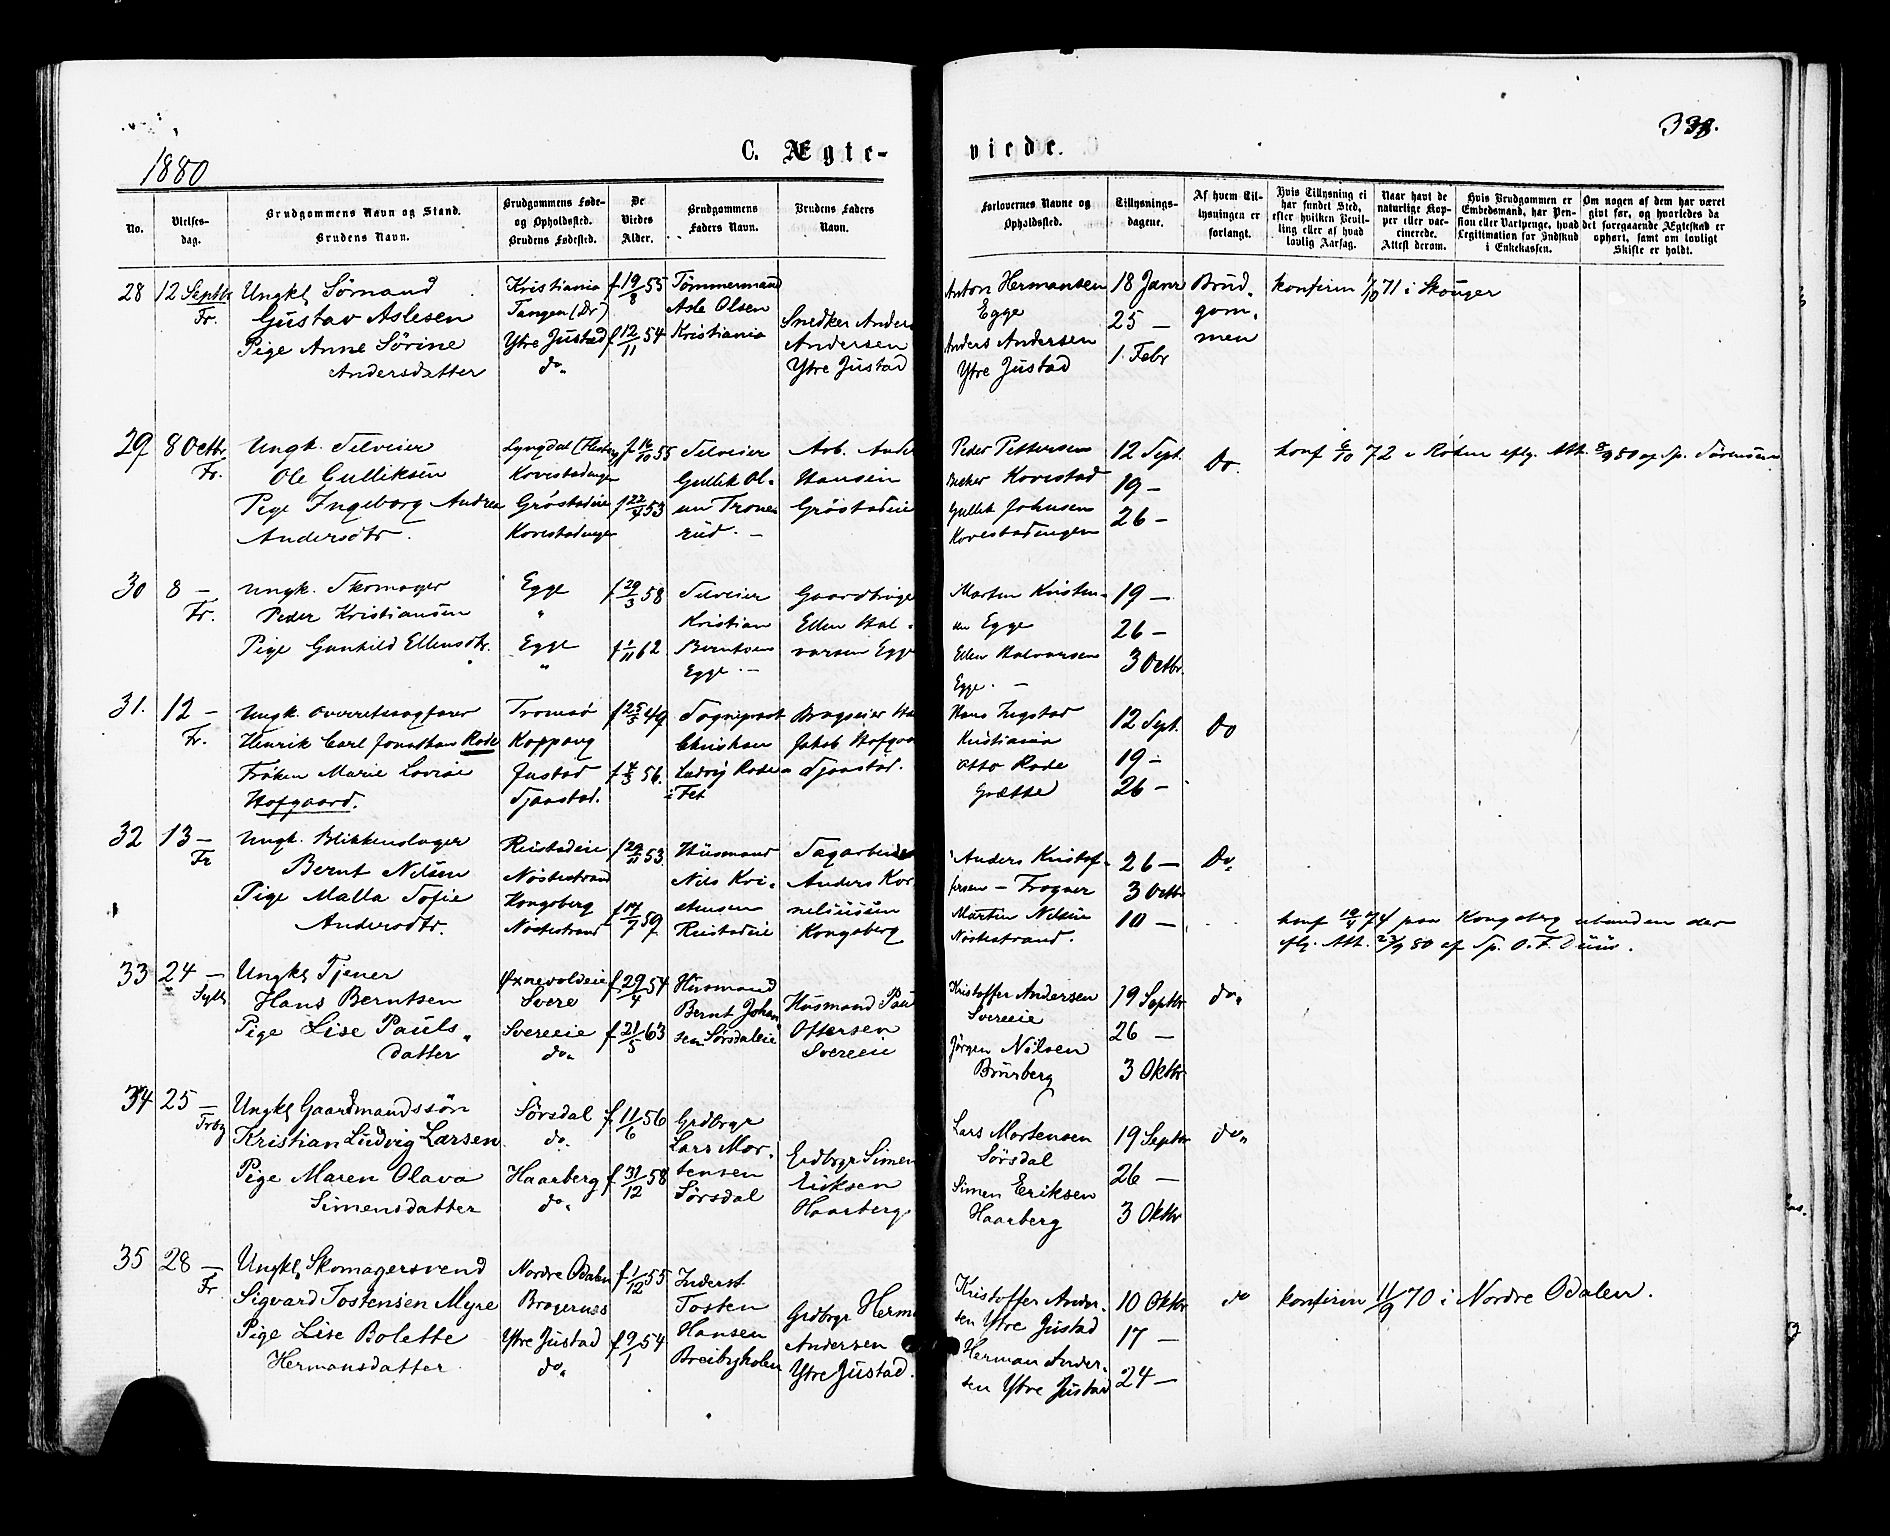 1880
C. Ægte-
viede.
No.
Vielses-
dag.
Brudgommens Navn og Stand.
Brudens Navn.
Brudgommens Føde-
og Opholdssted.
Brudens Fødested.
De
Viedes
Alder.
Brudgommens
Faders Navn.
Brudens Faders
Navn.
Forlovernes Navne og
Opholdssted.
Tillysnings-
dagene.
Af hvem Til-
lysningen er
forlangt.
Hvis Tillysning ei
har fundet Sted,
efter hvilken Bevil-
ling eller af hvad
lovlig Aarsag.
Naar havt de
naturlige Kop-
per eller vac-
cinerede.
Attest derom.
Hvis Brudgommen er
Embedsmand, har Pen-
sion eller Vartpenge, hvad
Legitimation for Indskud
i Enkekassen.
Om nogen af dem har været
givt før, og hvorledes da
det foregaaende Ægteskab er
ophørt, samt om lovligt
Skifte er holdt.
28
12 Septbr
Fr.
Ungkl Sømand
Gustav Aslesen
Pige Anne Sørine
Andersdatter
Kristiania
Tangen (Dr)
Ytre Justad
do.
f 19/8 55
f 12/11 54
Tømmermand
Asle Olsen
Kristiania
Snedker Anders
Andersen
Ytre Justad
Anton Hermansen
Egge
Anders Andersen
Ytre Justad
18 Janr
25 —
1. Febr
Brud-
gom-
men
konfirm 1/10 71 i Skouger
29
8 Octbr.
Fr.
Ungk. Selveier
Ole Gulliksen
Pige Ingeborg Andrea
Andersdtr.
Lyngdal
Kovestadengen
Grøstadeie
Kovestadengen
f 16/10 55
f 22/4 53
Selveier
Gullik Ol-
sen Trone-
rud. —
Arb.
Hansen
Grøstadeie
Peder Pettersen
Kovestad
Gullik Johnsen
Kovestadengen
12 Sept.
19 —
26 —
Do.
konf 6/10 72
30
8 —
Fr.
Ungk. Skomager
Peder Kristiansen
Pige Gunhild Ellensdtr.
Egge
"
Egge
"
f 29/3 58
f 1/11 62
Selveier
Kristian
Berntsen
Egge. —
Gaardbruge
Ellen Hal-
vorsen Egge
Marten Kristen-
sen Egge
Ellen Halvorsen
Egge. —
19 —
26 —
3 Octbr.
31.
12 —
Fr.
Ungk. Overretssagfører
Henrik Carl Jonathan Rode
Frøken Marie Lovise
Hofgaard.
Tromsø
Koppang
Justad
Sjaastad.
f 25/5 49
f 4/3 56.
Sogneprest
Christian
Ludvig Rode
i Fet
Jakob Hofgaa
Sjaastad.
Hans Ingstad
Kristiania
Otto Rode
Grætte
12 Sept.
19 —
26 —
Do
32
13 —
Fr
Ungk. Blikkenslager
Bernt Nilsen
Pige Malla Sofie
Andersdtr.
Reistadeie
Nøstestrand
Kongsberg
Nøstestrand
f 29/11 53.
f 17/7 59
Husmand
Nils Kri-
stensen
Reistadeie
Sagarbeider
Anders Kor
neliussen
Kongsberg
Anders Kristof-
fersen — Frogner
Martin Nilsen
Nøstestrand.
26 —
3 Octbr
10 —
Do.
konf 19/4 74 paa Kongsberg
eflg. Att. 23/9 80 af Sp. O. F. Duus.
33
24 —
Sylli
Ungkl Tjener
Hans Berntsen
Pige Lise Pauls-
datter
Øxnevoldeie
Svere
Svereeie
do.
f 29/4 54
f 21/5 63
Husmand
Bernt Johan
sen Sørsdaleie
Husmand Paul
Ottersen
Svereeie
Kristoffer Andersen
Svereeie
Jørgen Nilsen
Burberg
19 Septbr
26 —
3 Oktbr
do.
34
25 —
Frbg
Ungkl Gaardmandssøn
Kristian Ludvig Larsen
Pige Maren Olava
Simensdatter
Sørsdal
do.
Haarberg
do.
f 11/6 56
f 31/12 58
Grdbrgr
Lars Mor-
tensen
Sørsdal
Grdbrgr Simen
Eriksen
Haarberg
Lars Mortensen
Sørsdal
Simen Eriksen
Haarberg
19 Septbr
26 —
3 Oktbr
do.
35
28 —
Fr
Ungkl. Skomagersvend
Sigvard Tostensen Myre
Pige Lise Bolette
Hermansdatter
Nordre Odalen
Bragernæs
Ytre Justad
do.
f 1/12 55
f 9/1 54
Inderst
Tosten
Hansen
Breibyholen
Grdbrgr Herm
Andersen
Ytre Justad.
Kristoffer Ander-
sen Ytre Justad
Herman Ander-
sen Ytre Justad
10 Oktbr
17 —
24 —
do
konfirm 11/9 70 i Nordre Odalen.